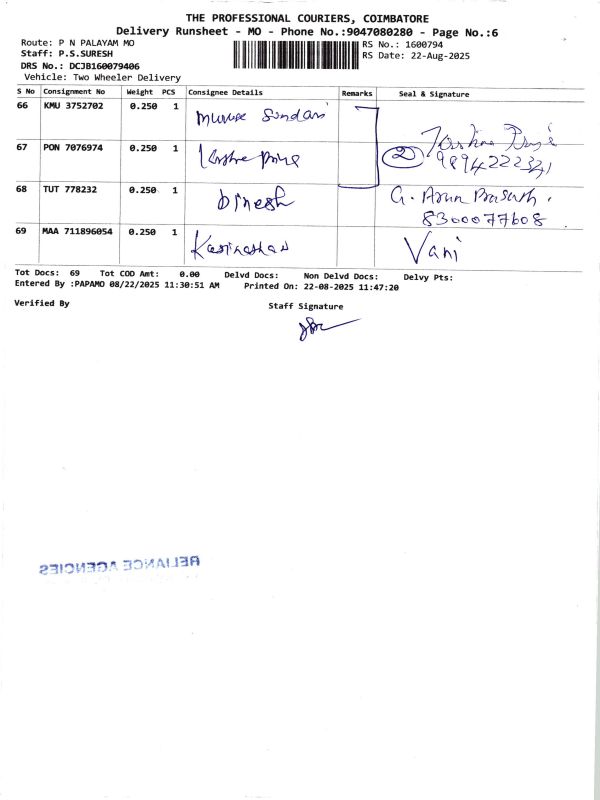 THE PROFESSIONAL COURIERS, COIMBATORE
Delivery Runsheet - MO - Phone No.:9047080280 - Page No.:6
Route: P N PALAYAM MO
RS No.: 1600794
Staff: P.S.SURESH
RS Date: 22-Aug-2025
DRS No.: DCJB160079406
Vehicle: Two Wheeler Delivery
S No Consignment No Weight PCS Consignee Details Remarks Seal & Signature
66 KMU 3752702 0.250 1
67 PON 7076974 0.250 1 2 9894222341
68 TUT 778232 0.250 1 Dinesh G. Arun Prasath.
8300077608
69 MAA 711896054 0.250 1 Vani
Tot Docs: 69 Tot COD Amt: 0.00 Delvd Docs: Non Delvd Docs: Delvy Pts:
Entered By :PAPAMO 08/22/2025 11:30:51 AM Printed On: 22-08-2025 11:47:20
Verified By Staff Signature
RELIANCE AGENCIES